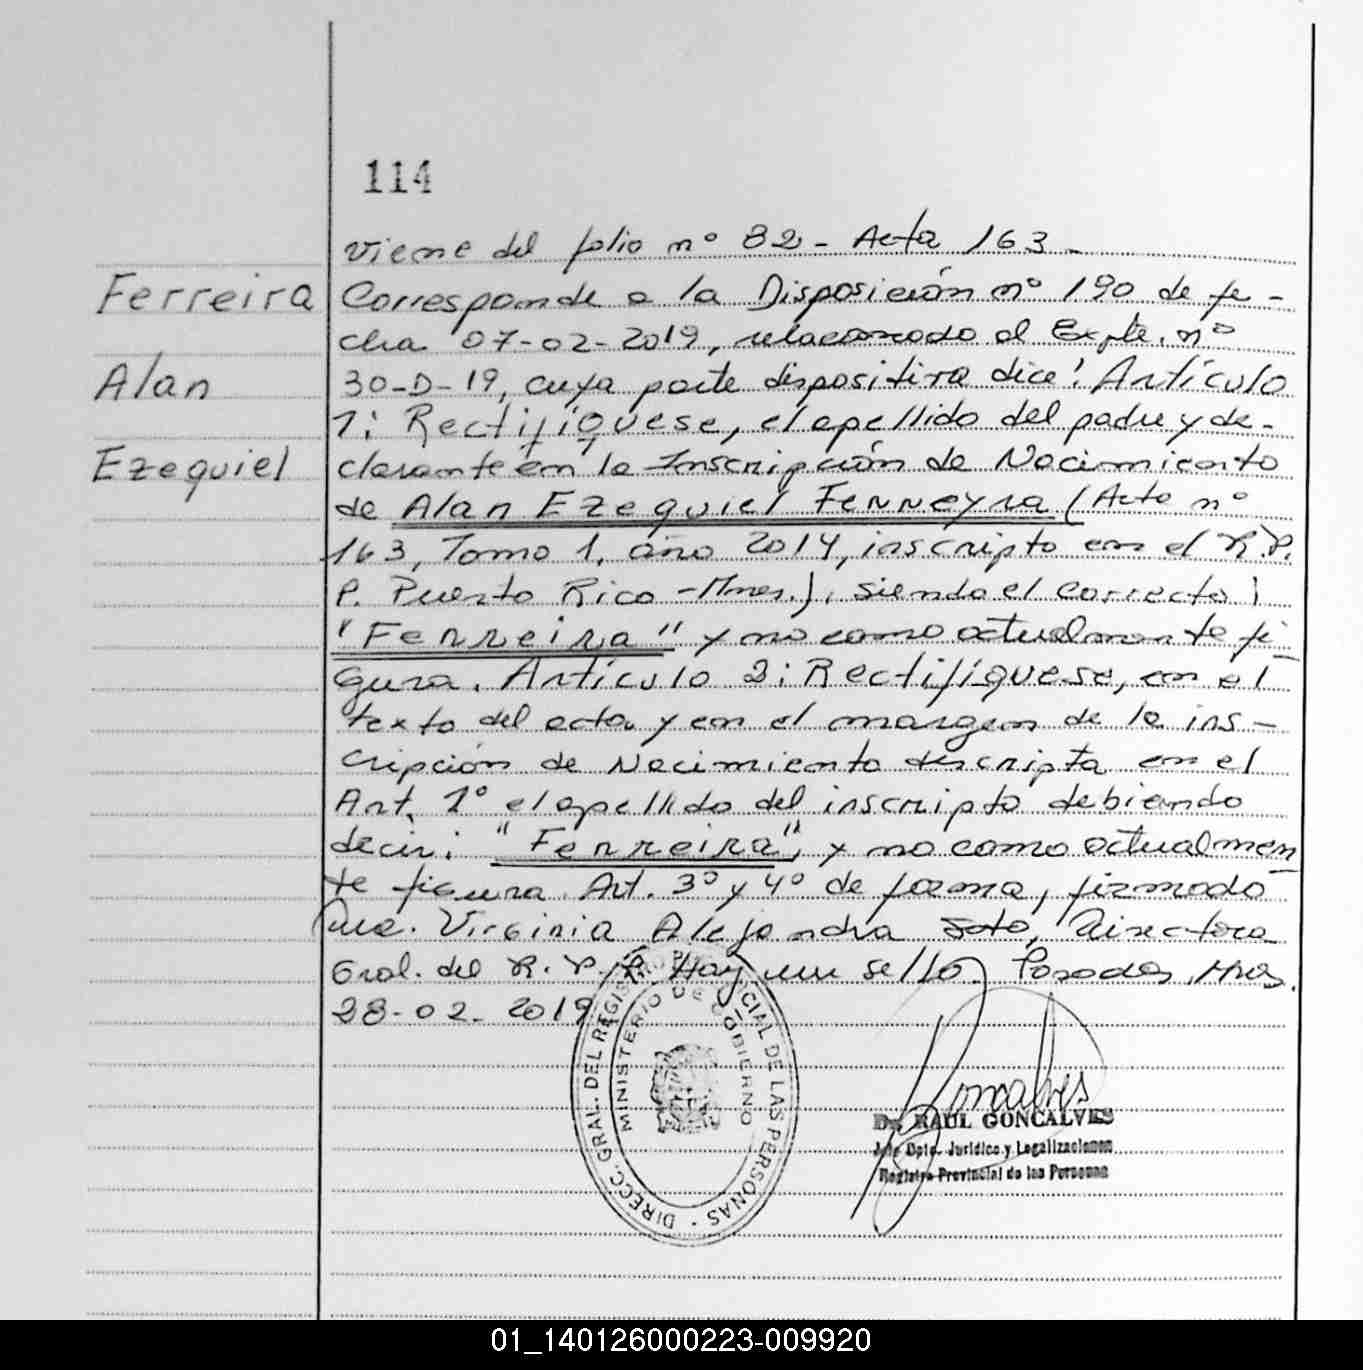 114
Viene del folio nº 82 - Acta 163 -
Ferreira
Alan
Ezequiel
Corresponde a la Disposición nº 190 de fe-
cha 07-02-2019, relacionado al Expte. nº
30-D-19, cuya parte dispositiva dice: Artículo
1: Rectifíquese, el apellido del padre y de-
clarante en la Inscripción de Nacimiento
de Alan Ezequiel Ferreyra (Acta nº
163, Tomo 1, año 2014, inscripto en el R.P.
P. Puerto Rico - Mnes.), siendo el correcto:
"Ferreira" y no como actualmente fi-
gura. Artículo 2: Rectifíquese, en el
texto del acta y en el margen de la ins-
cripción de Nacimiento descripta en el
Art. 1º el apellido del inscripto debiendo
decir: "Ferreira", y no como actualmen-
te figura. Art. 3º y 4º de forma, firmado
Dra. Virginia Alejandra Soto, Directora
Gral. del R.P.P. Hay un sello. Posadas, Mnes.
28-02-2019
DIRECC. GRAL. DEL REGISTRO PROVINCIAL DE LAS PERSONAS
MINISTERIO DE GOBIERNO
Goncalves
Dr. RAUL GONCALVES
Jefe Dpto. Jurídico y Legalizaciones
Registro Provincial de las Personas
01_140126000223-009920